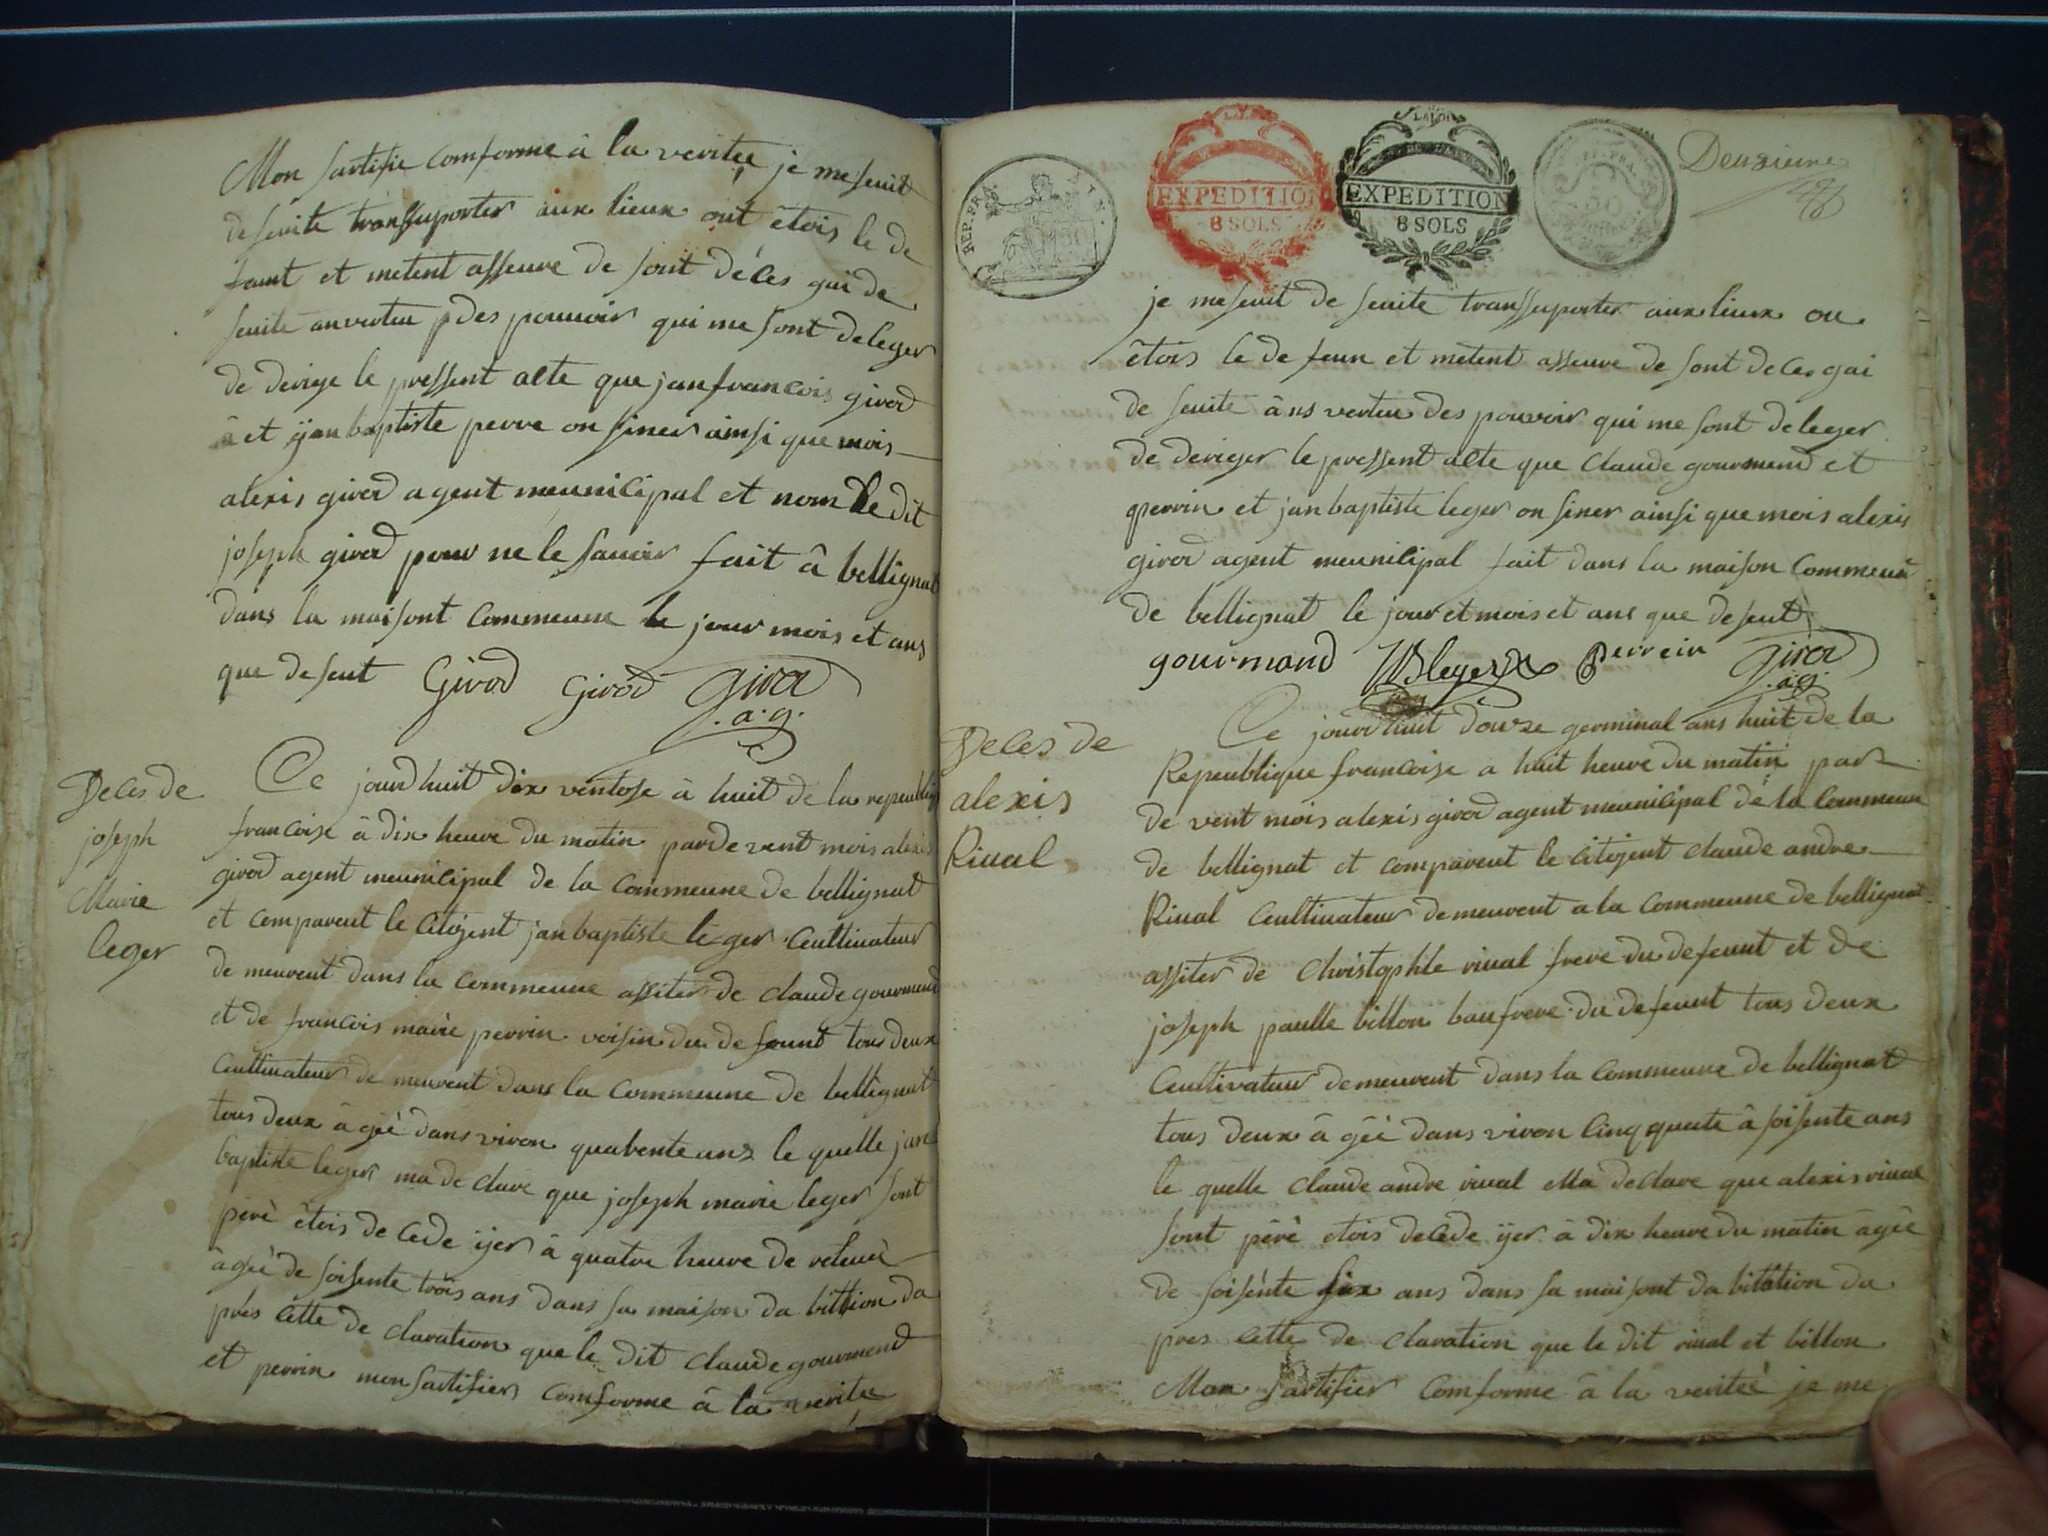 Mon sartifie comforme à la veritee je me seuit
de seuite transsuporter aux lieux out êtois le de
feunt et metent asseure de sont déces qui de
seuite an verteu des pouvoir qui me sont deleger
de deriege le pressent alte que jan francois girod
et ÿan baptiste perre on siner ainsi que mois
alexis girod agent meunicipal et nom le dit
joseph girod pour ne le savoir fait â bellignat
dans la maisont commeune le jour mois et ans
que deseut Girod Girod Girod
.a.g.
Deces de
joseph
Marie
leger
Ce jourdhuit dix ventose â huit de la repeubliq
francoise â dix heure du matin pardevent mois alexis
girod agent meunicipal de la commeune de bellignat
et comparent le Citoÿent jan baptiste leger Ceultivateur
de meurent dans la commeune assiter de claude gourmend
et de francois marie perrin voisin du defeunt tous deux
Ceultivateur de meurent dans la commeune de bellignat
tous deux â géé dans viron quarente ans le quelle jan
baptiste leger ma de clare que joseph marie leger sont
pere êtois de cede ÿer â quatre heure de releveè
âgéè de soisente trois ans dans sa maison da bittion da
près cette de claration que le dit claude gourmend
et perrin mon sartifier comforme â la veritee
REP. FRA.
LA LOI
EXPEDITION
8 SOLS
LA LOI
EXPEDITION
8 SOLS
50
Deuxieme
je me seuit de seuite transsuporter aux lieux ou
êtois le de feun et metent asseure de sont deces qui
de seuite âns verteu des pouvoir qui me sont deleger
de deriger le pressent alte que claude gourmend et
perrin et jan baptiste leger on siner ainsi que mois alexis
girod agent meunicipal fait dans la maison commeune
de bellignat le jour et mois et ans que deseut
gourmand JB leger Perrein Girod
.a.g.
Deces de
alexis
Rival
Ce jourdhuit douze germinal ans huit de la
Repeublique francoise a huit heure du matin par
de vent mois alexis girod agent meunicipal de la commeune
de bellignat et comparent le Citoÿent claude andre
Rival Ceultivateur demeurent a la commeune de bellignat
assiter de christophle rival frere du defeunt et de
joseph paulle billon baufrere du defeunt tous deux
Ceultivateur demeurent dans la commeune de bellignat
tous deux â géè dans viron cinq quate â soisente ans
le quelle claude andre rival Ma declare que alexis rival
sont pérè etois decede ÿer â dix heure du matin âgée
de soisènte six ans dans sa maisont da bitation da
pres cette de claration que le dit rival et billon
Mon sartifier comforme â la veriteé je me